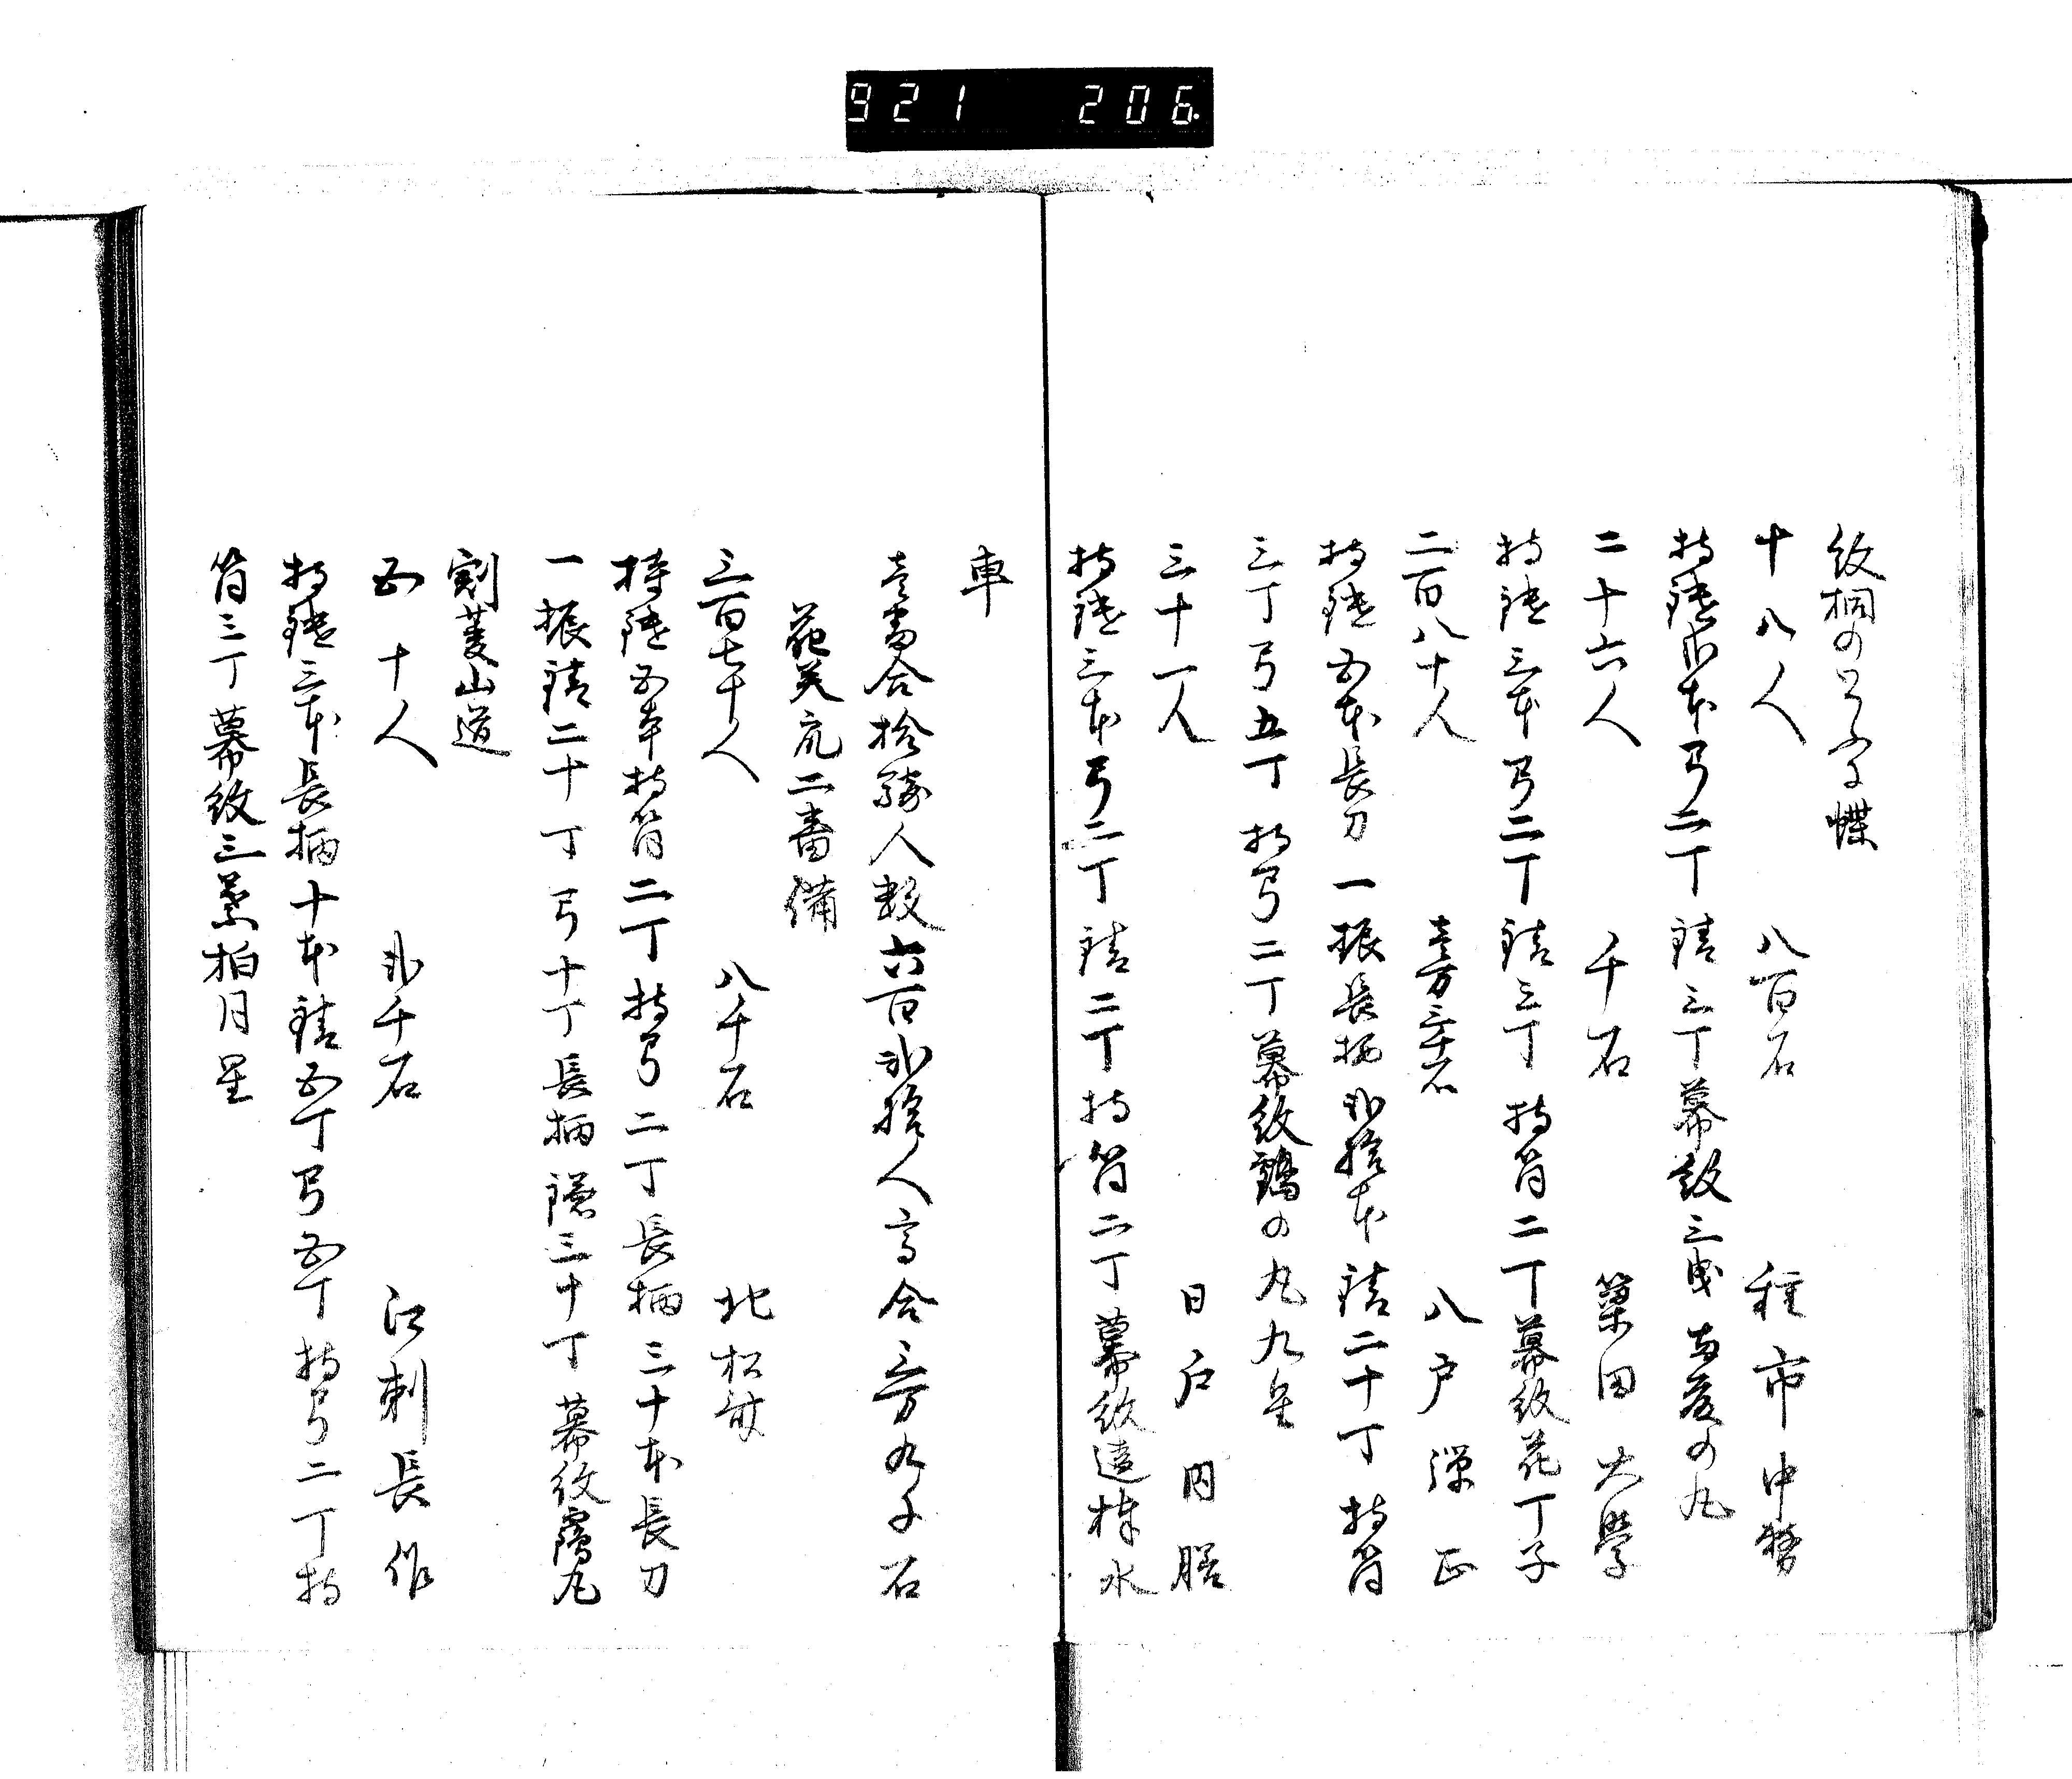 921 206
紋桐のとふに蝶
十八人 八百石 種市中務
持鑓弐本弓二丁錆三丁幕紋三曳の丸
二十六人 千石 簗田大學
持鑓三本弓二丁錆三丁持筒二丁幕紋花丁子
二百八十人 壱万三千石 八戸彈正
持鑓五本長刀一振長柄弐拾本錆二十丁持筒
三丁弓五丁持弓二丁幕紋鶴の丸九星
三十一人 日戸内膳
持鑓三本弓二丁錆二丁持筒二丁幕紋遠株水
車
壱番合拾務人数六百弐拾人高合三万九千石
花美亢二番備
三百七十人 八千石 北松斎
持鑓五本持筒二丁持弓二丁長柄三十本長刀
一振錆二十丁弓十丁長柄鑓三十丁幕紋靏丸
割菱山道
五十人 弐千石 江刺長作
持鑓三本長柄十本錆五丁弓五丁持弓二丁持
筒三丁幕紋三葉柏月星